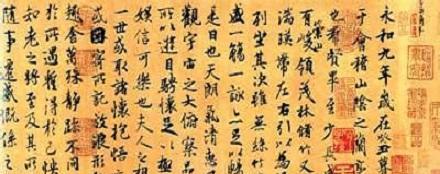 永和九年歲在癸丑暮
于會稽山陰之蘭亭
也群賢畢至少長
有崇山峻領茂林脩竹又
湍暎帶左右引以為
列坐其次雖無絲竹
盛一觴一詠亦足以暢
是日也天朗氣清惠風
觀宇宙之大俯察品
所以遊目騁懷足以極
娛信可樂也夫人之相
一世或取諸懷抱悟言
或因寄所託放浪形
趣舍萬殊靜躁不同
於所遇暫得於己快
知老之將至及其所
隨事遷感慨係之